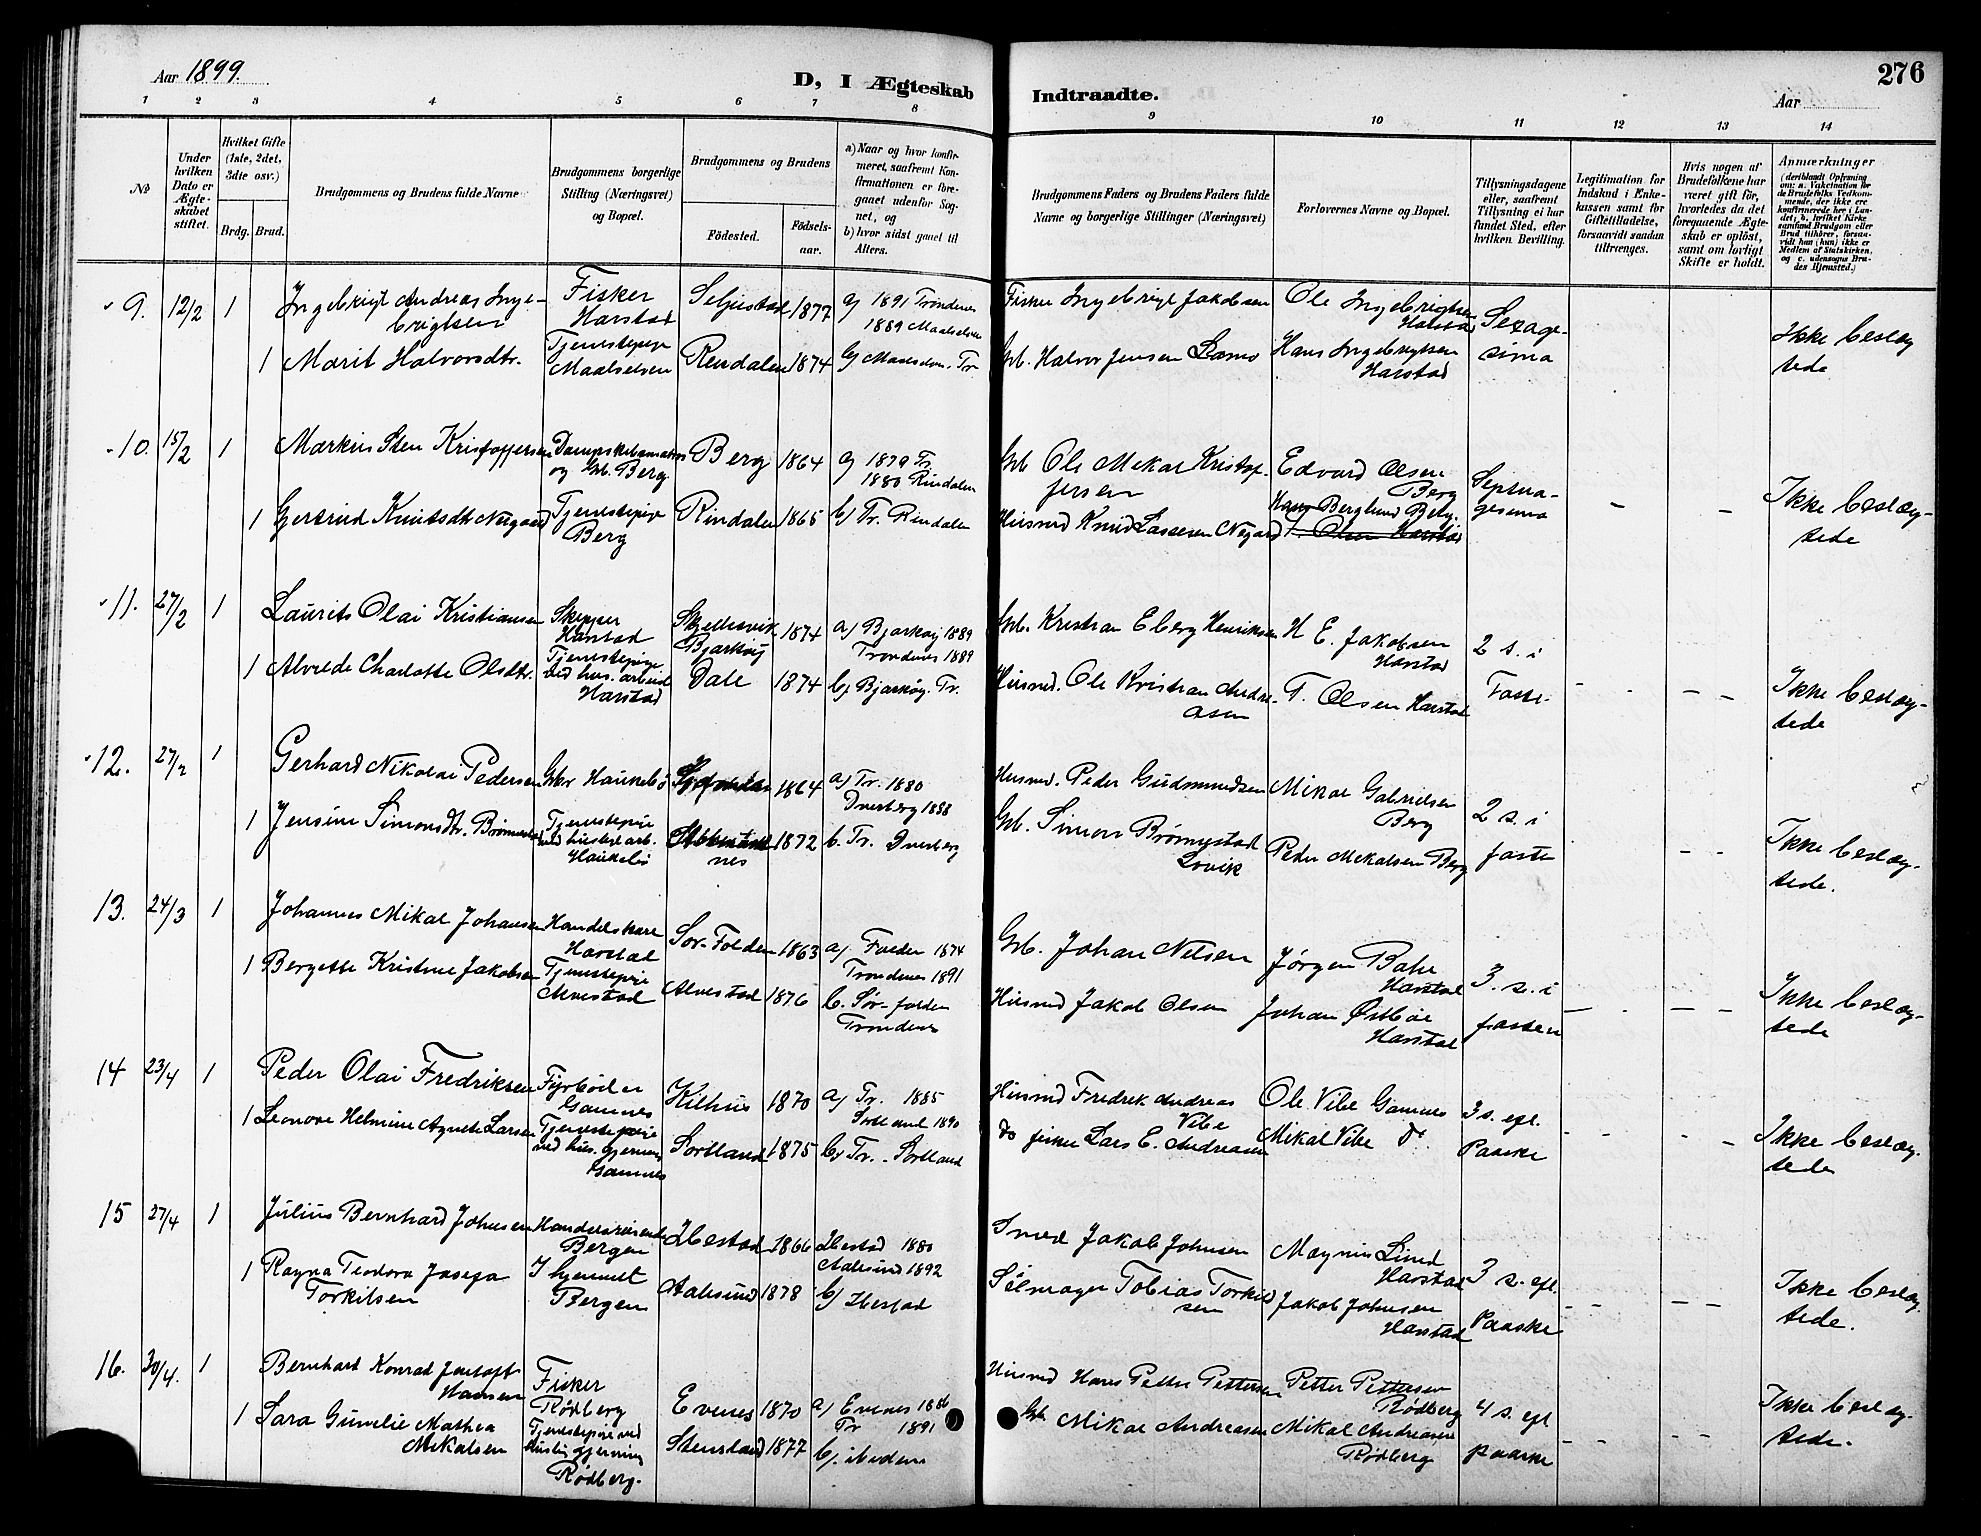 Aar 1899.
D, I Ægteskab Indtraadte.
276
Aar
1 2 3 4 5 6 7 8 9 10 11 12 13 14
No
Under hvilken Dato er Ægteskabet stiftet.
Hvilket Gifte (1ste, 2det, 3die osv.)
Brdg. Brud.
Brudgommens og Brudens fulde Navne
Brudgommens borgerlige Stilling (Næringsvei) og Bopæl.
Brudgommens og Brudens
Fødested. Fødselsaar.
a) Naar og hvor konfirmeret, saafremt Konfirmationen er foregaaet udenfor Sognet, og
b) hvor sidst gaaet til Alters.
Brudgommens Faders og Brudens Faders fulde Navne og borgerlige Stillinger (Næringsvei)
Forlovernes Navne og Bopæl.
Tillysningsdagene eller, saafremt Tillysning ei har fundet Sted, efter hvilken Bevilling.
Legitimation for Indskud i Enkekassen samt for Giftetilladelse, forsaavidt saadan tiltrænges.
Hvis nogen af Brudefolkene har været gift før, hvorledes da det foregaaende Ægteskab er opløst, samt om lovligt Skifte er holdt.
Anmærkninger (deriblandt Oplysning om: a. Vakcination for de Brudefolks Vedkommende, der ikke ere konfirmerede her i Landet; b. hvilket Kirkesamfund Brudgom eller Brud tilhører, forsaavidt han (hun) ikke er Medlem af Statskirken, og c. udensogns Brudes Hjemsted.)
9. 12/2 1 Ingebrigt Andreas Ingebrigtsen Fisker Harstad 1877 a) 1891 Trondenes 1889 Maalselven Fisker Ingebrigt Jakobsen Ole Ingebrigtsen Harstad Sexagesima
1 Marit Halvorsdtr. Tjenestepige Maalselven Rendalen 1874 Gb. Halvor Jensen Hans Ingebrigtsen Harstad Ikke beslægtede
10. 15/2 1 Markus Sten Kristoffersen og Gb. Berg Berg 1864 a) 1879 Tr. 1880 Rindalen Gb Ole Mekal Kristoffersen Edvard Olsen Berg Septuagesima
1 Gertrud Knutsdtr Tjenestepige Berg Rindalen 1865 b) Tr. Rindalen Husmd Knud Lassesen Hans Berglund Berg. Olsen Harstad - - Ikke beslægtede
11. 27/2 1 Laurits Olai Kristiansen Skipper Harstad Bjarkøy 1874 a) Bjarkøy 1889 Trondenes 1889 Gb. Kristian Eberg Henriksen H E. Jakobsen Harstad 2 s. i Faste.
1 Alvilde Charlotte Olsdtr. Tjenestepige ved hus. arbeid Harstad Dale 1874 b) Bjarkøy. Tr. Husmd. Ole Kristian Andreasen T. Olsen Harstad - - - - Ikke beslægtede
12. 27/2 1 Gerhard Nikolai Pedersen Gbr Haukebø 1864 a) Tr. 1880 Dverberg 1888 Husmd. Peder Gudmundsen Mikal Gabrielsen Berg 2 s. i faste
1 Jensine Simonsdtr. Tjenestepie Haukebø 1872 b. Tr. Dverberg Gb. Simon Peder Mekalsen Berg - - Ikke beslægtede.
13. 24/3 1 Johannes Mikal Johansen Handelskarl Harstad Sør-Folden 1863 a) Folden 1874 Trondenes 1891 Gb. Johan Nilsen Jørgen Harstad 3. s. i fasten
1 Bergette Kristine Jakobsen Tjenestepie Alvestad Alvestad 1876 b. Sør-folden Trondenes Husmd Jakob Olsen Johan Østbøe Harstad - - - - Ikke beslægtede
14 23/4 1 Peder Olai Fredriksen Fyrbøder Gamnes Kilhus 1870 a) Tr. 1885 Husmd Fredrik Andreas Vibe Ole Vibe Gamnes 3 s. eft. Paaske
1 Leonore Helmine Agnete Larsen Tjenestepie ved hus. gjerning Gamnes Sortland 1875 b) Tr. Sortland do fisker Lars E. Andreasen Mikal Vibe do - - - - Ikke beslægtede
15 27/4 1 Julius Bernhard Johnsen Handelsreisende Bergen Ibestad 1866 Ibestad 1880 Aalesund 1892 Smed Jakob Johnsen Magnus Lind Harstad 3 s. eft. Paaske
1 Ragna Teodora Josefa Torkilsen I hjemmet Bergen Aalesund 1878 b) Ibestad Tobias Torkilsen Jakob Johnsen Harstad - - - - Ikke beslægtede.
16. 30/4. 1 Bernhard Konrad Jentoft Hansen Fisker Rødberg Evenes 1870 a) Evenes 1886 Tr 1891 Husmd Hans Petter Pettersen Petter Pettersen Rødberg 4 s. eft paaske
1 Sara Gunelie Mathea Mekalsen Tjenestepie ved huslig gjerning Rødberg. Stensland 1877 b) ibidem Gb. Mikal Andreasen Mikal Andreasen Rødberg - - - - Ikke beslægtede.